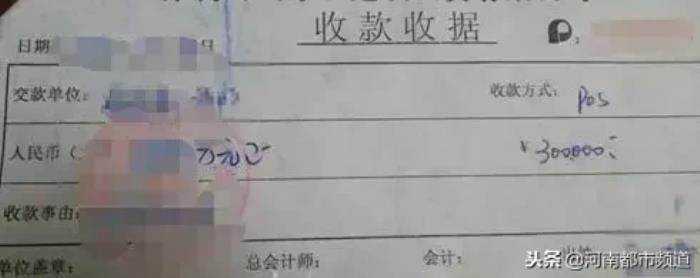 收款收据
日期
交款单位: 收款方式: Pos
人民币( 万元 ¥300000
收款事由:
单位盖章: 总会计师: 会计:
头条 @河南都市频道